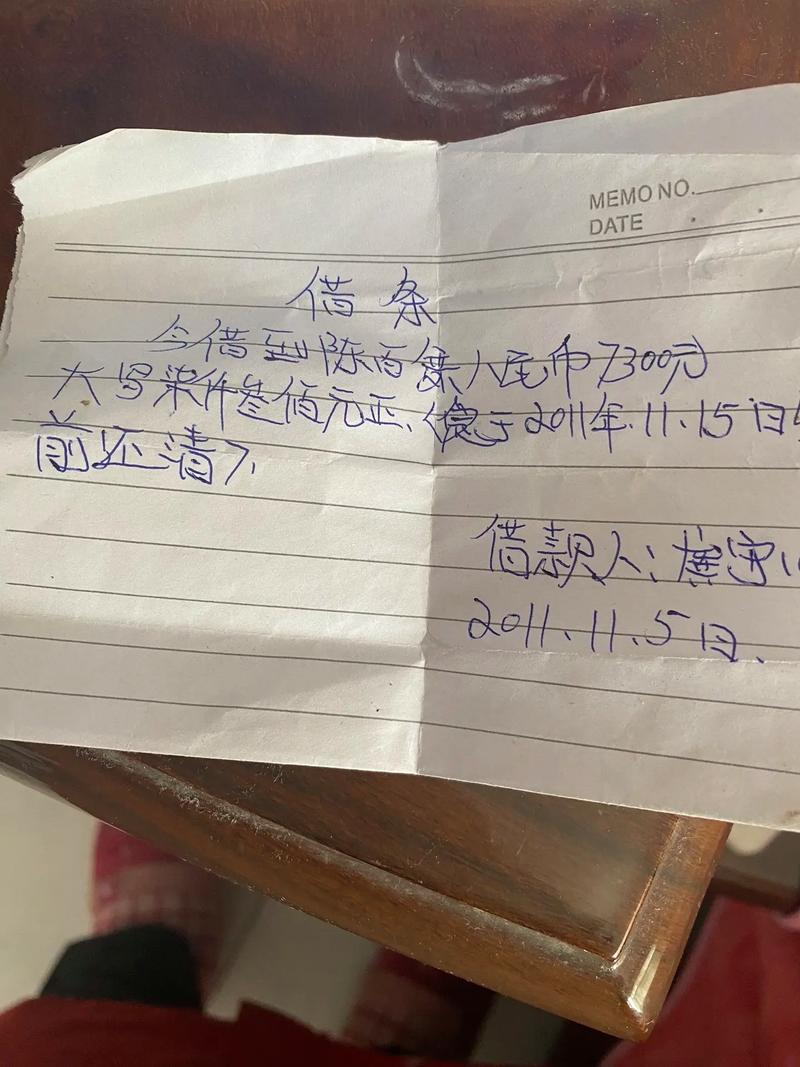 MEMO NO.
DATE
借条
今借到陈百人民币7300元
大写柒仟叁佰元正、于2011年.11.15日
前还清
借款人:守
2011.11.5日.